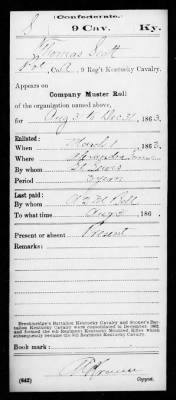 (Confederate.)
S 9 Cav. Ky.
Thomas Scott
Co. , 9 Reg't Kentucky Cavalry.
Appears on
Company Muster Roll
of the organization named above,
for Aug 31 to Dec 31, 1863.
Enlisted:
When March 1, 1863.
Where Alexandria Tenn
By whom
Period 3 years
Last paid:
By whom Bell
To what time Aug 31, 186 .
Present or absent Present
Remarks:
Breckinridge's Battalion Kentucky Cavalry and Stoner's Battalion Kentucky Cavalry were consolidated in December, 1862, and formed the 9th Regiment Kentucky Mounted Rifles which subsequently became the 9th Regiment Kentucky Cavalry.
Book mark:
(642) Copyist.